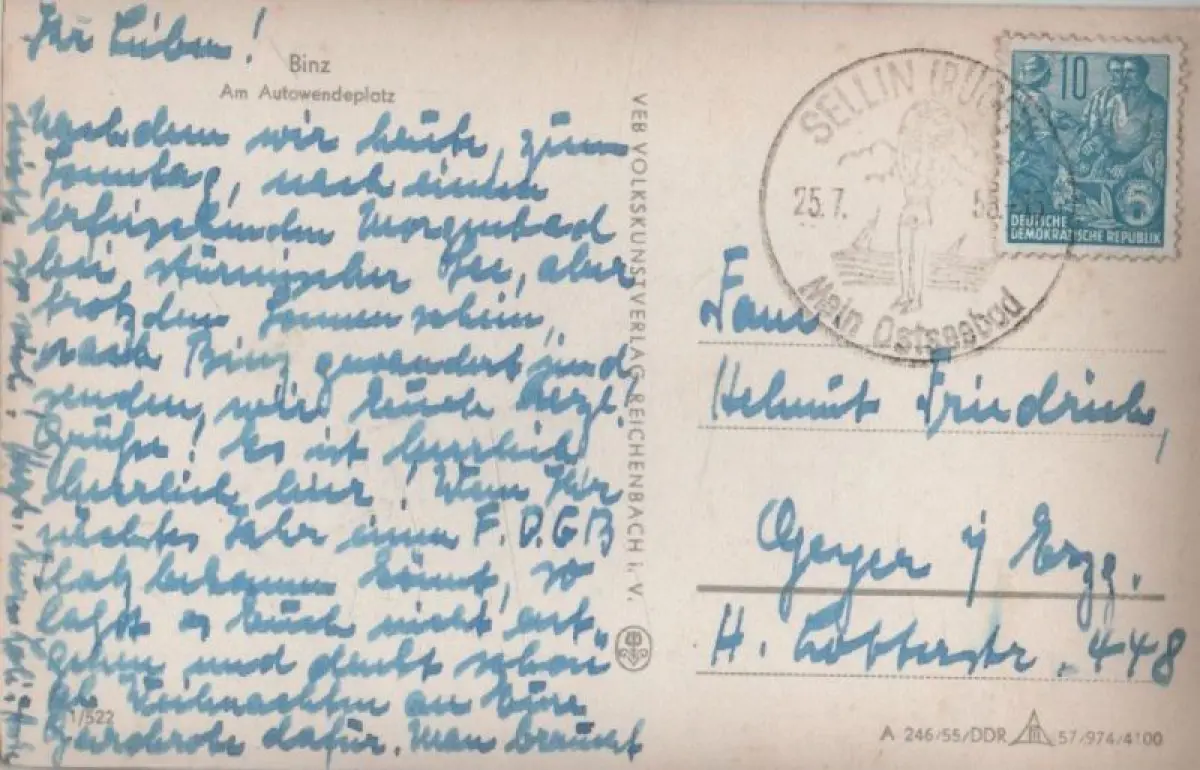 Ihr Lieben!
Binz
Am Autowendeplatz
Nachdem wir heute, zum
Sonntag, nach einem
erfrischenden Morgenbad
bei stürmischer See, aber
trotzdem Sonnenschein,
nach Binz gewandert sind,
senden wir Euch herzl.
Grüße! Es ist herrlich
herrlich hier! Wenn Ihr
nächstes Jahr einen F.D.G.B
Platz bekommen könnt, so
laßt es Euch nicht ent-
gehen und denkt schon
ab Weihnachten an Eure
Garderobe dafür. Man braucht
nichts
1/522
VEB VOLKSKUNSTVERLAG REICHENBACH i. V.
SELLIN (RÜGEN)
25.7. 58
Mein Ostseebad
10
5
DEUTSCHE
DEMOKRATISCHE REPUBLIK
Fam
Helmut Friedrich,
Geyer i/ Erzg.
H. Lotterstr. 448
A 246/55/DDR 57/974/4100